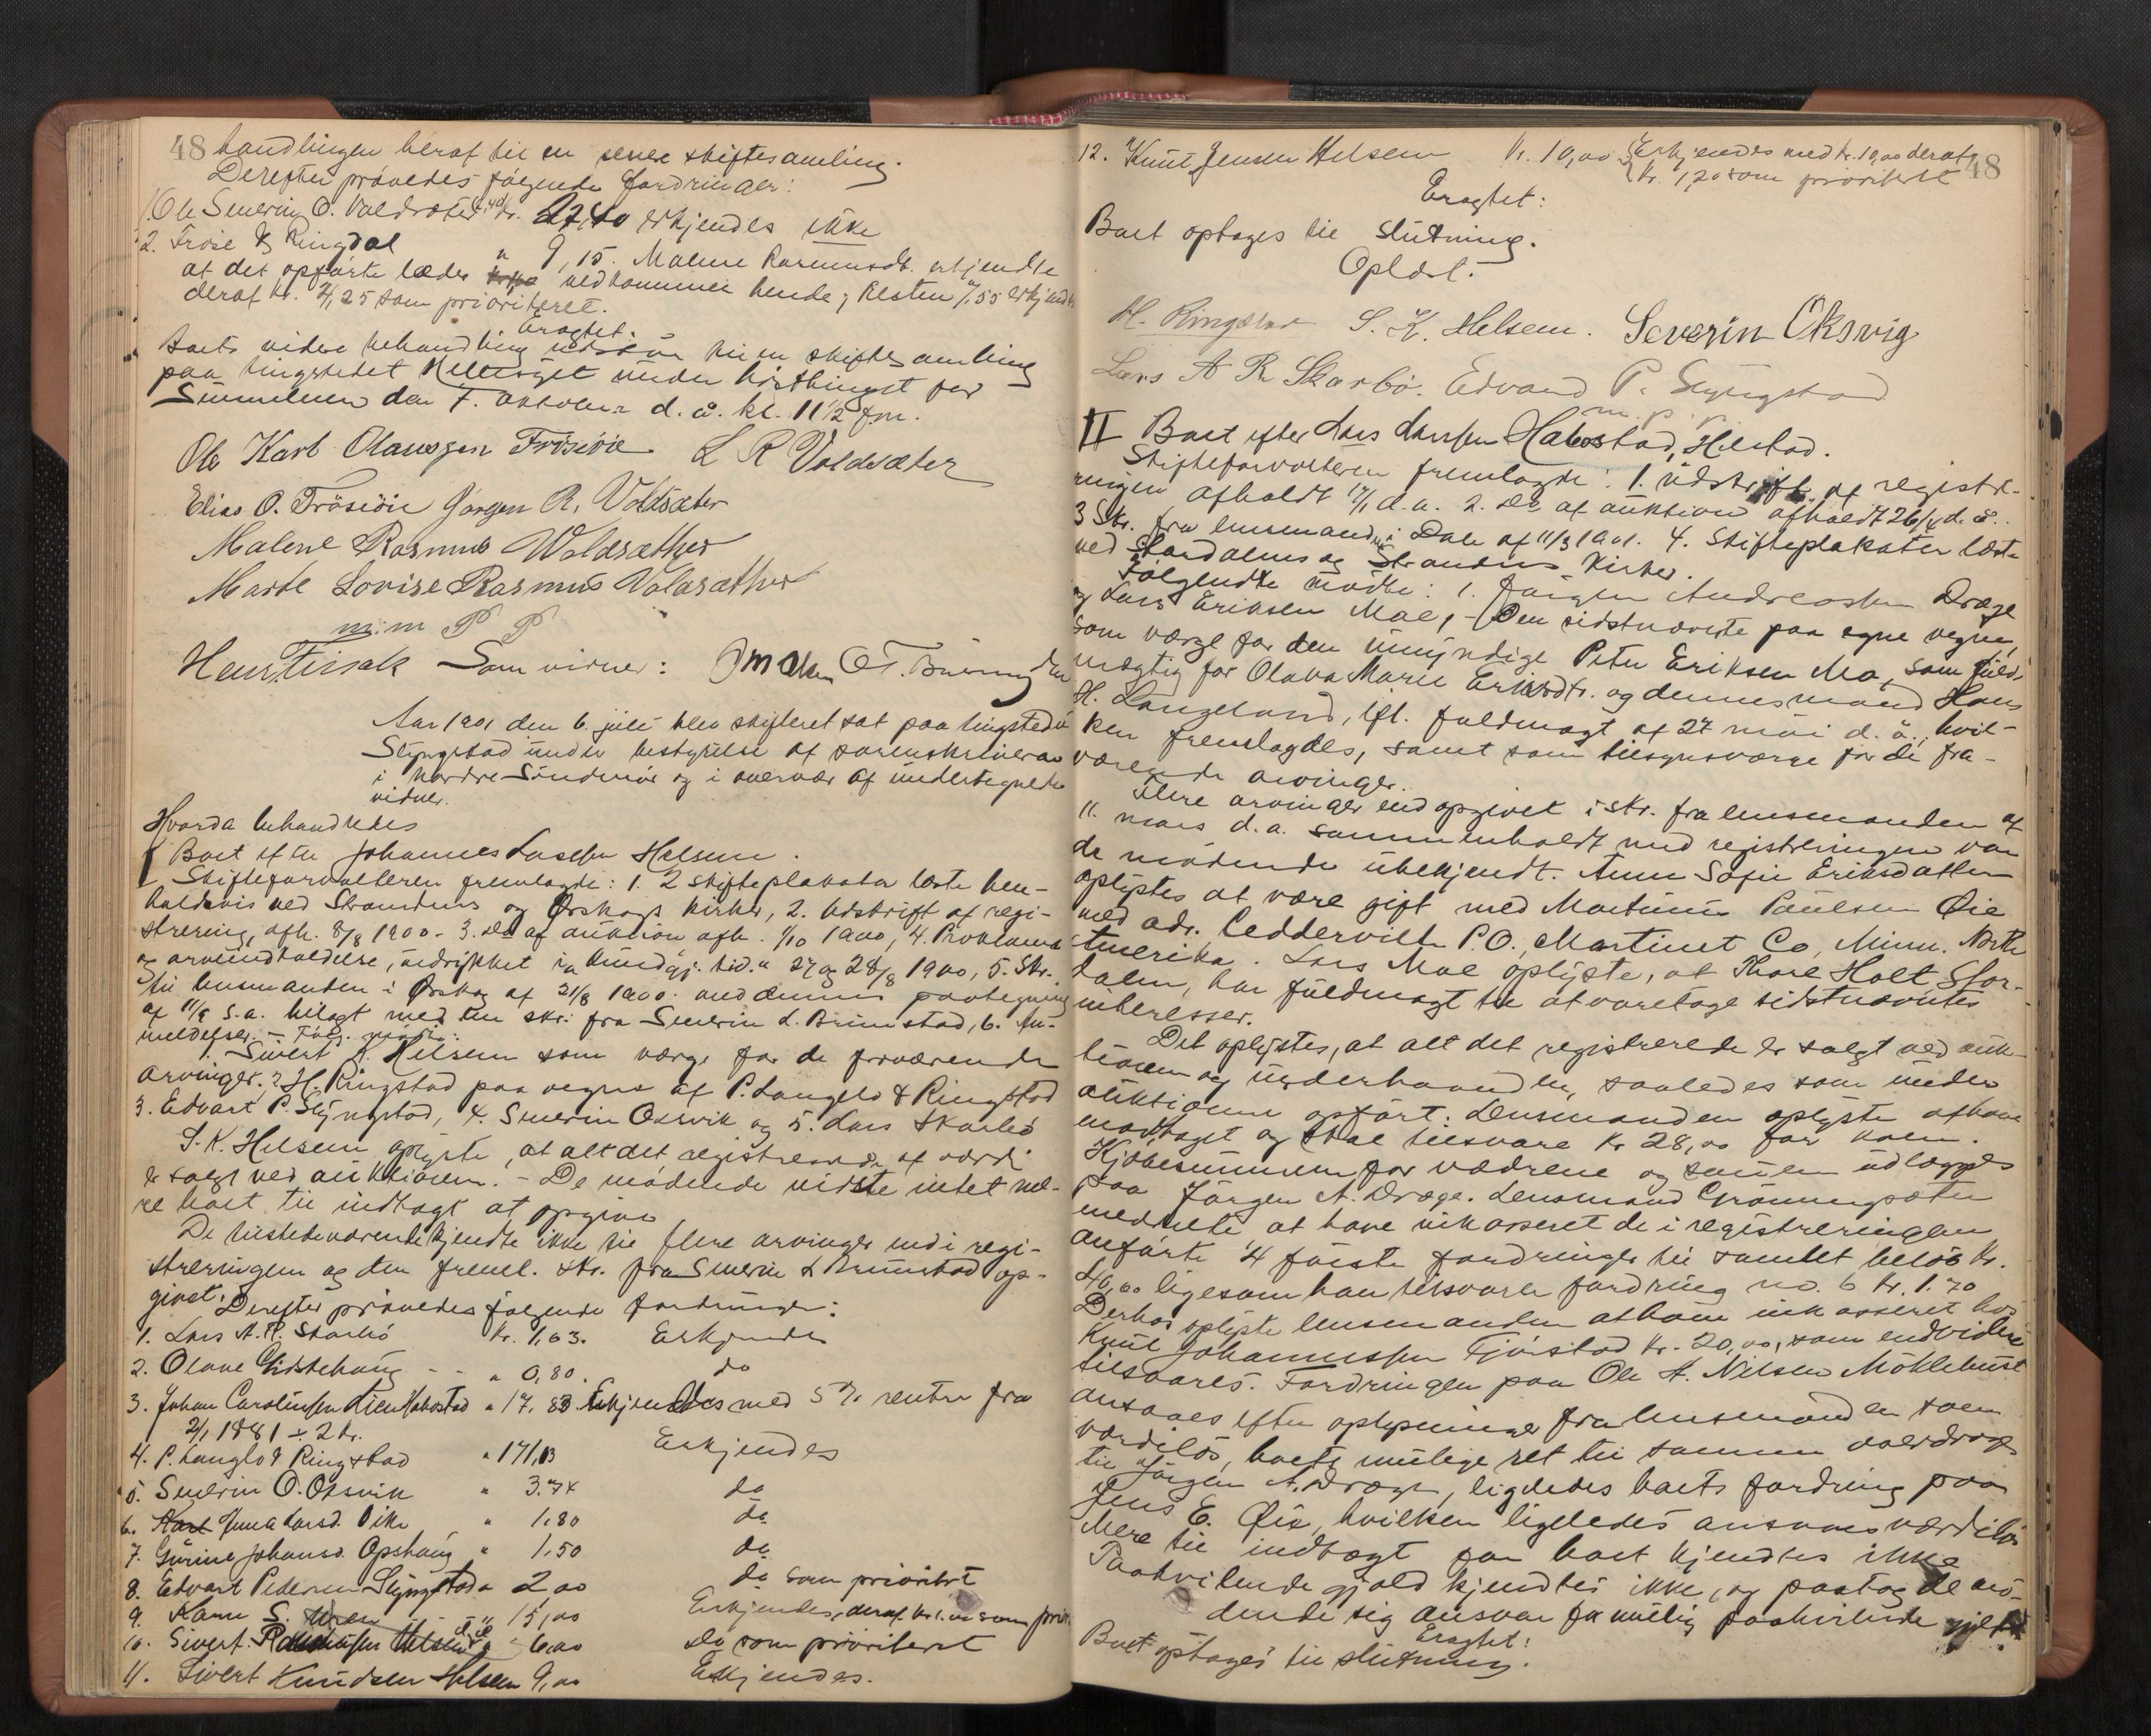 48 handlingen heraf til en senere skiftesamling.
Derefter prövedes fölgende fordringer:
1. Ole Severin O. Valdsæter kr. 27,40 erkjendes ikke
2. Frøse & Ringdal " 9,15. Malene Rasmusdt. erkjendte
at det opførte læder vedkommer hende; Resten erkjendtes
deraf kr. 4,25 som prioriteret.
Eragtet:
Boets videre behandling udsættes til en skiftesamling
paa tingstedet under høsttinget for
den 7. oktober d. å. kl. 11 1/2 fm.
Ole Karl Olaussen Frösöie L R Valdsæter
Elias O. Frösöie Jørgen R. Voldsæter
Malene Rasmus Woldsæther
Marte Lovise Rasmus Valdsæther
m: m P P
Som vidner:
Aar 1901 den 6. juli blev skifteret sat paa tingstedet
Slyngstad under bestyrelse af sorenskriveren
i Nordre Söndmör og i overvær af undertegnede
vidner.
Hvorda behandledes
I Boet efter Johannes Lassesen Helsem.
Skifteforvalteren fremlagde: 1. 2 skifteplakater læste hen-
holdsvis ved Strandens og Ørskogs kirker, 2. Udskrift af regi-
strering, afh. 8/8 1900. 3. Do af auktion afh. 1/10 1900, 4. Proklama
og arveindkaldelse, indrykket i "kundgj. tid." 27 og 28/8 1900, 5. Skr.
til lensmanden i Ørskog af 21/8 1900 med dennes paategning
af 11/9 s. a. bilagt med en skr. fra Severin L. Brunstad, 6. An-
meldelser. - Følg. mødte:
1. Sivert K. Helsem som værge for de fraværende
arvinger. 2 H. Ringstad paa vegne af P. Langlo & Ringstad
3. Edvart P. Slyngstad, 4. Severin Oksvik og 5. Lars Skarbö
S. K. Helsem oplyste, at alt det registrerede af værdi
er solgt ved auktionen. - De mødende vidste intet me-
re boet til indtægt at opgive
De tilstedeværende kjendte ikke til flere arvinger end i regi-
streringen og den freml. skr. fra Severin L Brunstad op-
givet.
Derefter prövedes følgende fordringer:
1. Lars A. R. Skarbö kr. 1,63. Erkjendes
2. Olave Gidskehaug - - " 0,80. do
3. Johan Carolinssen Lien Habostad " 17,83 Erkjendes med 5 % renter fra
2/1 1881 ÷ 2 kr.
4. P. Langlo & Ringstad " 171,13 Erkjendes
5. Severin O. Oksvik " 3.74 do
6. Larsd. Vike " 1.80 do
7. Gurine Johansd. Opshaug " 1.50 do
8. Edvart Pedersen Slyngstad " 2,00 do som prioritert
9. Karen S. Uren " 15,00 Erkjendes, deraf kr. 1.00 som prior.
10. Sivert Helsem " 6,00 do som prioriteret
11. Sivert Knudsen Helsem 9,00 Erkjendes.
12. Knut Jensen Helsem kr. 10,00 Erkjendes med kr. 10,00 deraf
kr. 1,20 som prioritert
48
Eragtet:
Boet optages til slutning.
Oplæst.
H. Ringstad S. K. Helsem. Severin Oksvig
Lars A R Skarbö. Edvard P. Slyngstad
m. p. p.
II Boet efter Lars Larssen Habostad, Helstad.
Skifteforvalteren fremlagde: 1. Udskrift af registre-
ringen afholdt 17/1 d. a. 2. Do af auktion afholdt 26/4 d. å.
3 Skr. fra lensmanden i Dale af 11/3 1901. 4. Skifteplakater læste
ved Stordalens og Strandens Kirker.
Følgendte mødte: 1. Jørgen Andreassen Dræge
og Lars Eriksen Moe, - Den sidstnævnte paa egne vegne,
som værge for den umyndige Peter Eriksen Mo, som fuld-
mægtig for Olava Marie Eriksdtr. og dennes mand Hans
H. Langeland, ifl. fuldmagt af 27 mai d. å., hvil-
ken fremlagdes, samt som tilsynsværge for de fra-
værende arvinger.
Flere arvinger end opgivet i skr. fra lensmanden af
11. mars d. a. sammenholdt med registreringen var
de mødende ubekjendt. Anne Sofie Eriksdatter
oplystes at være gift med Martinus Paulsen Øie
med adr. Ceddervill P.O., Martinet Co, Minn. North
Amerika. Lars Moe oplyste, at Thore Holt Stor-
dalen, har fuldmagt til at varetage sidstnævntes
interesser.
Det oplystes, at alt det registrerede er solgt ved auk-
tionen og underhaanden, saaledes som under
auktionen opført. Lensmanden oplyste at have
modtaget og skal tilsvare kr 28,00 for koen.
Kjøbesummen for vædrene og sauen udlægges
paa Jörgen A. Dræge. Lensmand Grønningsæter
meddelte at have inkasseret de i registreringen
anførte 4 første fordringer til samlet beløb kr.
40,00 ligesom han tilsvarer fordring no. 6 kr. 1.70
Derhos oplyste lensmanden at have inkasseret hos
Knut Johannessen Fjørstad kr. 20,00, som endvidere
tilsvares. Fordringen paa Ole A. Nilsen Möklebust
ansaaes efter oplysninger fra lensmanden som
værdiløs, boets mulige ret til samme overdrages
til Jörgen A. Dræge, ligeledes boets fordring paa
Jens E. Øie, hvilken ligeledes ansaaes værdiløs
Mere til indtægt for boet kjendtes ikke
Paahvilende gjæld kjendtes ikke, og paatog de mö-
dende sig ansvar for mulig paahvilende gjæld
Eragtet:
Boet optages til slutning.